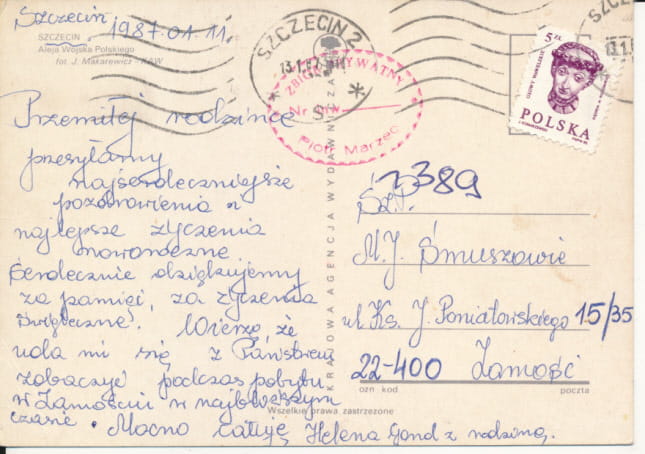 Szczecin, 1987.01.11.
SZCZECIN
Aleja Wojska Polskiego
fot. J. Makarewicz - KAW
SZCZECIN 2
13.1.87
ZBIÓR PRYWATNY
Nr
Piotr Marzec
5 ZŁ
GŁOWY WAWELSKIE
POLSKA
Przemiłej rodzince
przesyłamy
najserdeczniejsze
pozdrowienia i
najlepsze życzenia
noworoczne.
Serdecznie dziękujemy
za pamięć, za życzenia
świąteczne. Wierzę, że
uda mi się z Państwem
zobaczyć podczas pobytu
w Zamościu w najbliższym
czasie. Mocno całuję, Helena Gond z rodziną.
KRAJOWA AGENCJA WYDAWNICZA
389
Sz.P.
M.J. Smuszowie
ul. Ks. J. Poniatowskiego 15/35
22-400 Zamość
ozn kod poczta
Wszelkie prawa zastrzeżone